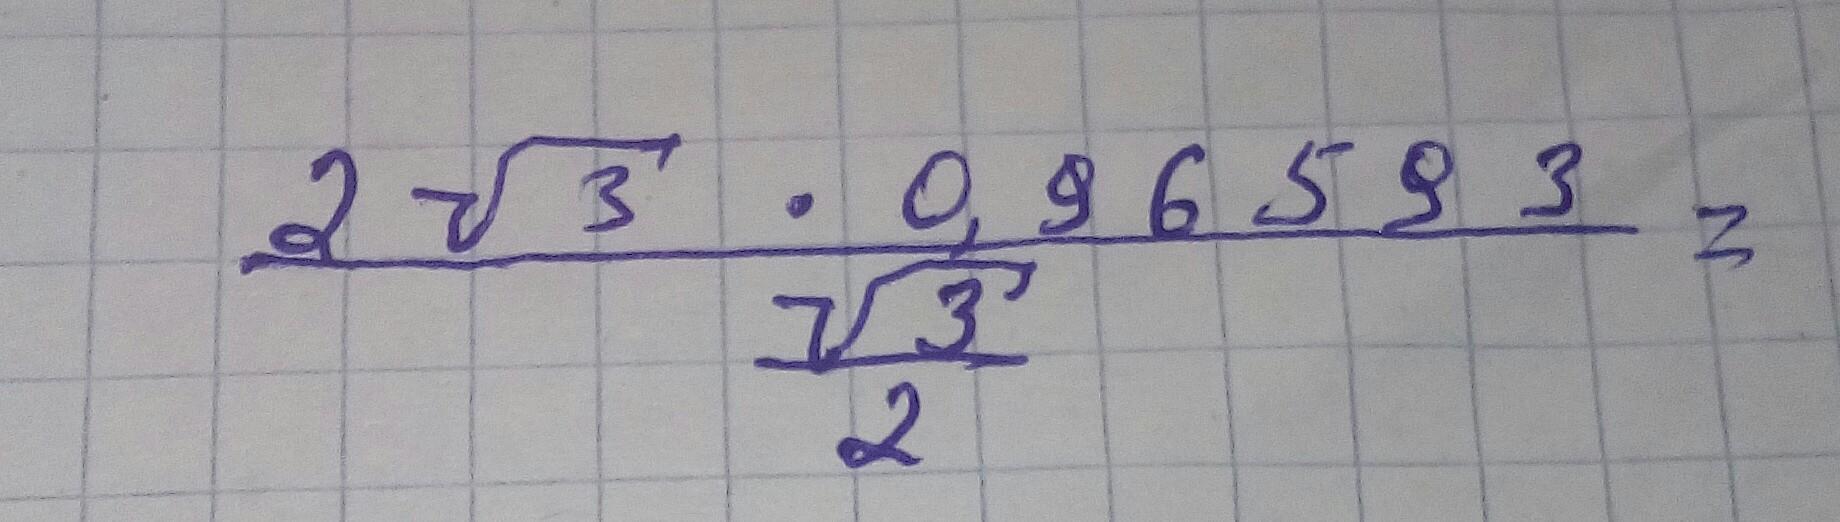 2√3 · 0,96593 =
√3
2